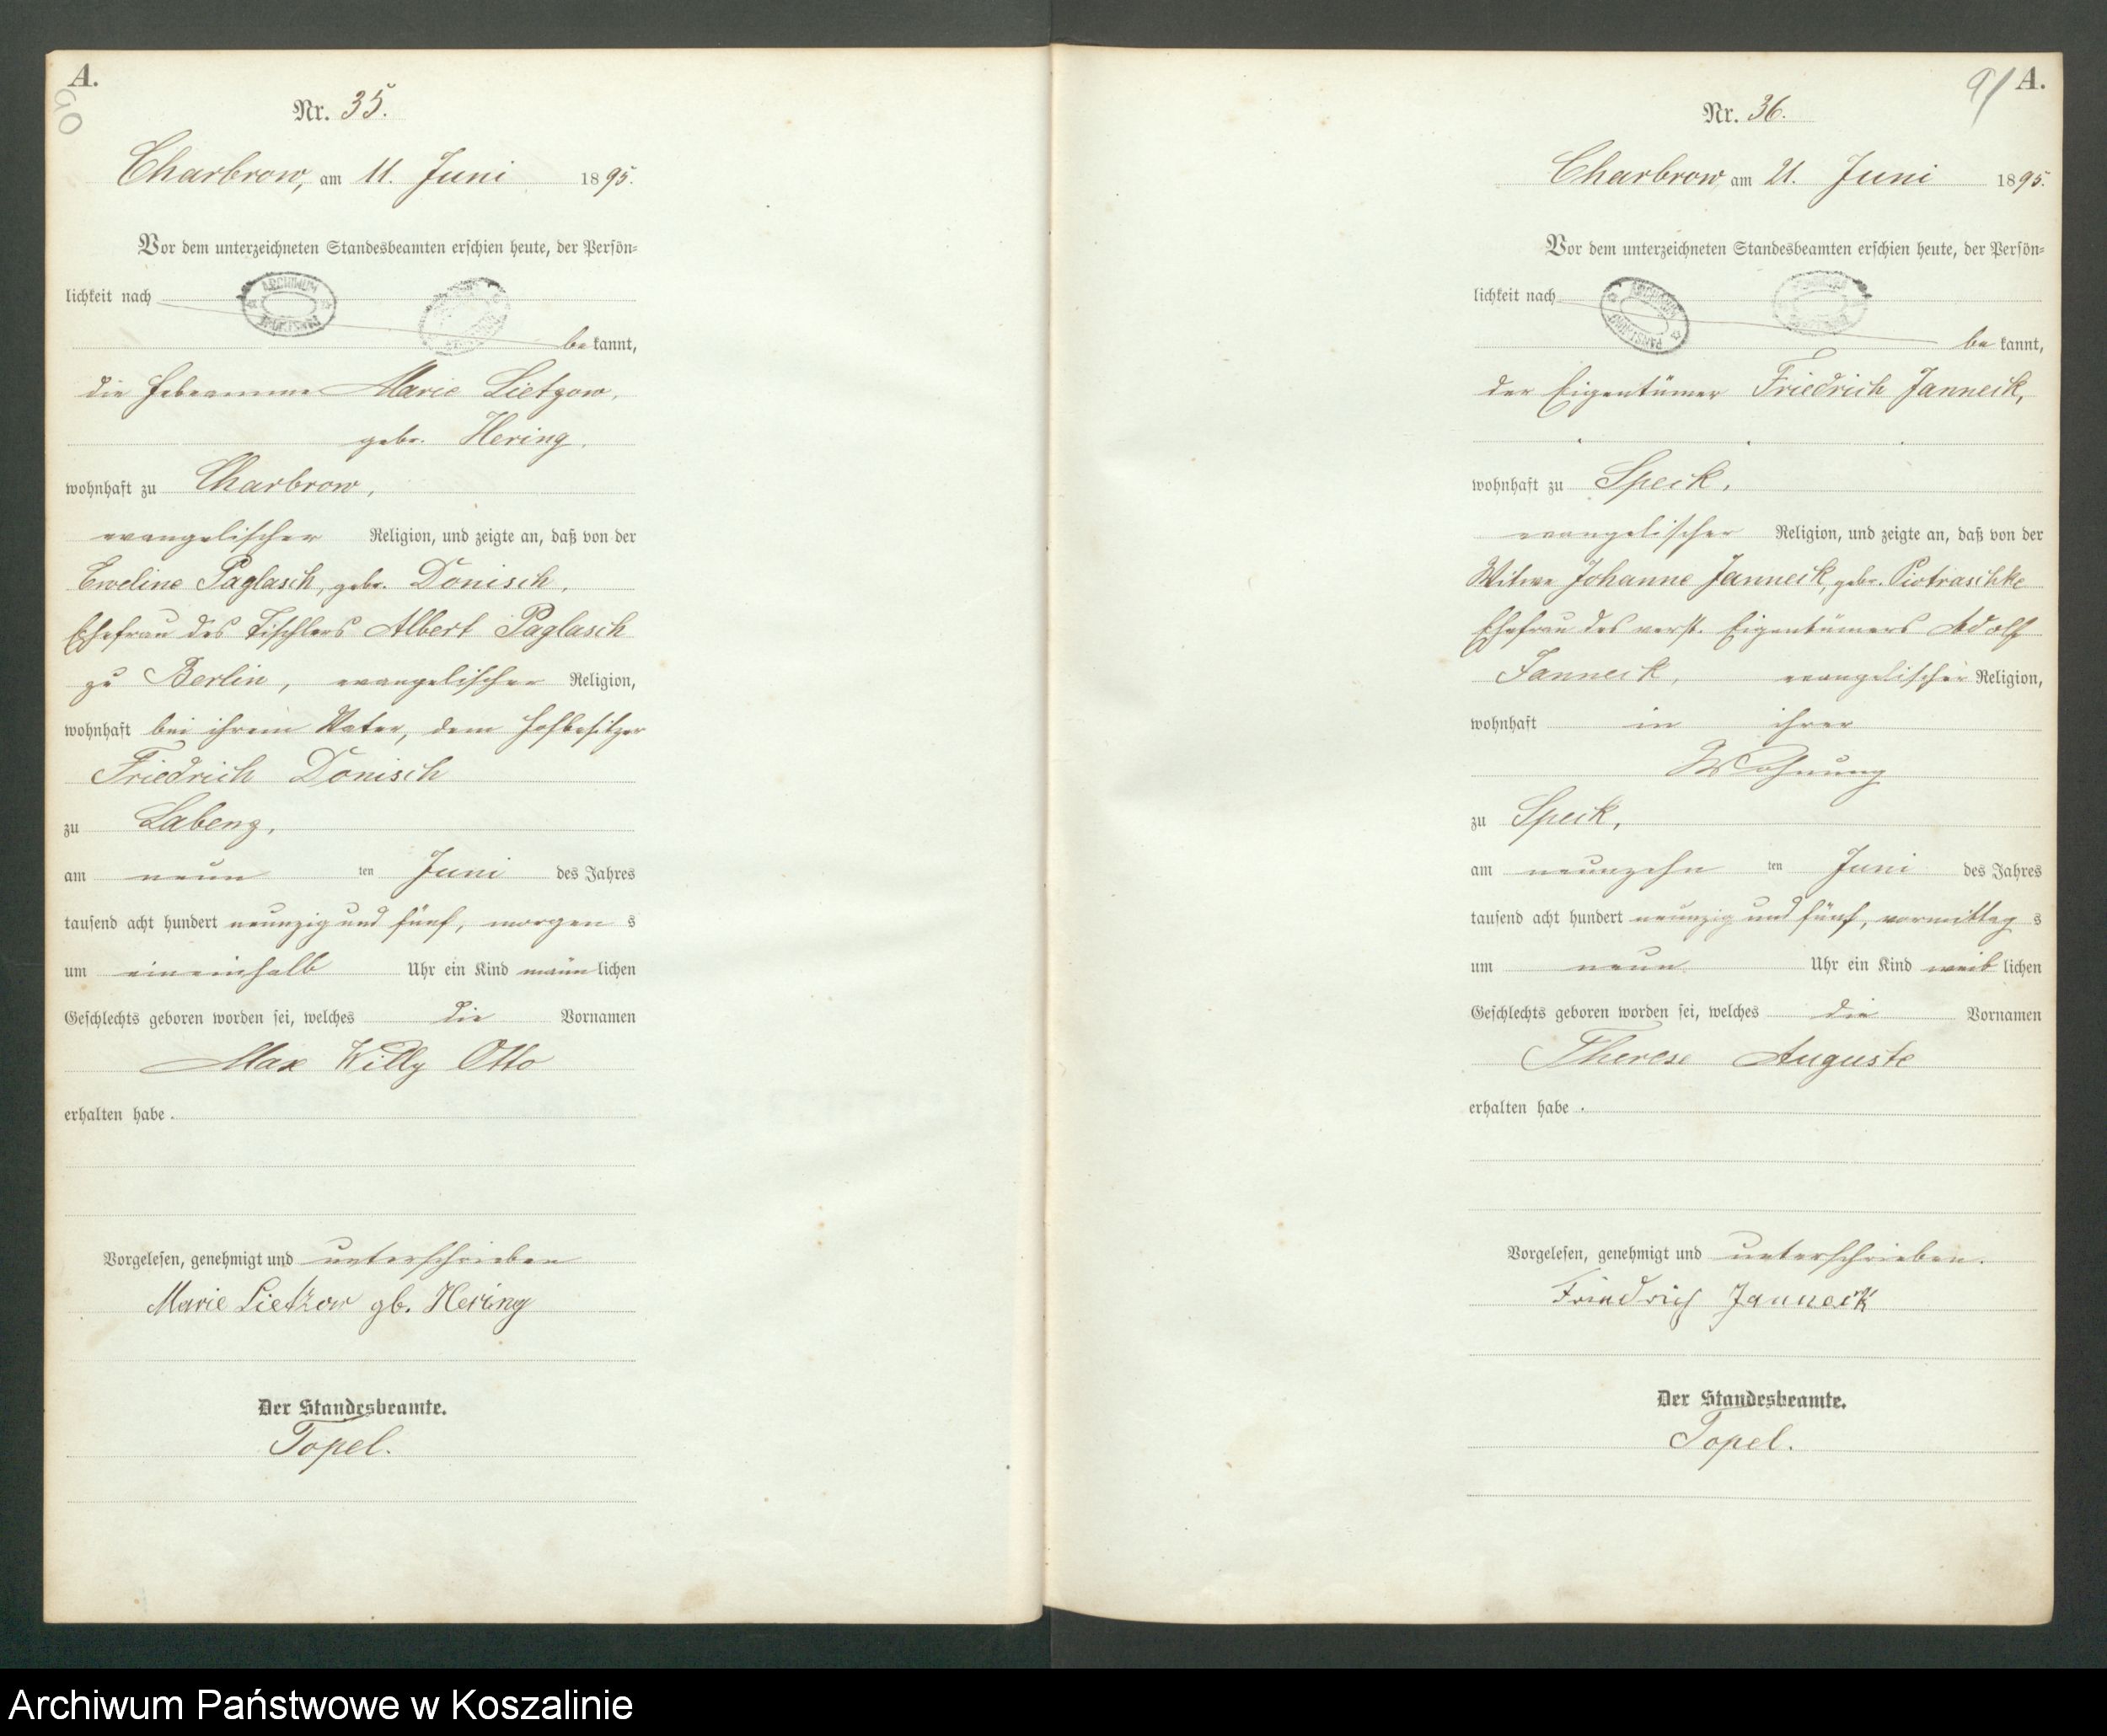 A.
90
Nr. 35.
Charbrow, am 11. Juni 1895.
Vor dem unterzeichneten Standesbeamten erschien heute, der Persön-
lichkeit nach
ARCHIWUM
bekannt,
die Hebeamme Marie Lietzow,
gebr. Hering,
wohnhaft zu Charbrow,
evangelischer Religion, und zeigte an, daß von der
Eveline Paglasch, gebr. Donisch,
Ehefrau des Tischlers Albert Paglasch
zu Berlin, evangelischer Religion,
wohnhaft bei ihrem Vater, dem Hofbesitzer
Friedrich Donisch
zu Labenz,
am neun ten Juni des Jahres
tausend acht hundert neunzig und fünf, morgen s
um eineinhalb Uhr ein Kind männlichen
Geschlechts geboren worden sei, welches die Vornamen
Max Willy Otto
erhalten habe.
Vorgelesen, genehmigt und unterschrieben
Marie Lietzow gb. Hering
Der Standesbeamte.
Topel.
91 A.
Nr. 36.
Charbrow, am 21. Juni 1895.
Vor dem unterzeichneten Standesbeamten erschien heute, der Persön-
lichkeit nach
bekannt,
der Eigentümer Friedrich Janneck,
wohnhaft zu Speck,
evangelischer Religion, und zeigte an, daß von der
Witwe Johanne Janneck, gebr. Piotraschke
Ehefrau des verst. Eigentümers Adolf
Janneck, evangelischer Religion,
wohnhaft in ihrer
Wohnung
zu Speck,
am neunzehn ten Juni des Jahres
tausend acht hundert neunzig und fünf, vormittag s
um neun Uhr ein Kind weiblichen
Geschlechts geboren worden sei, welches die Vornamen
Therese Auguste
erhalten habe.
Vorgelesen, genehmigt und unterschrieben.
Friedrich Janneck
Der Standesbeamte.
Topel.
Archiwum Państwowe w Koszalinie